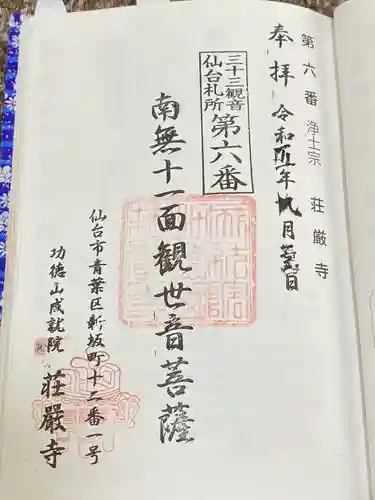 第六番 浄土宗 荘厳寺
奉拝 令和 年 月 日
三十三觀音
仙台札所
第六番
南無十一面観世音菩薩
仙台市青葉区新坂町十二番一号
功徳山成就院 荘嚴寺